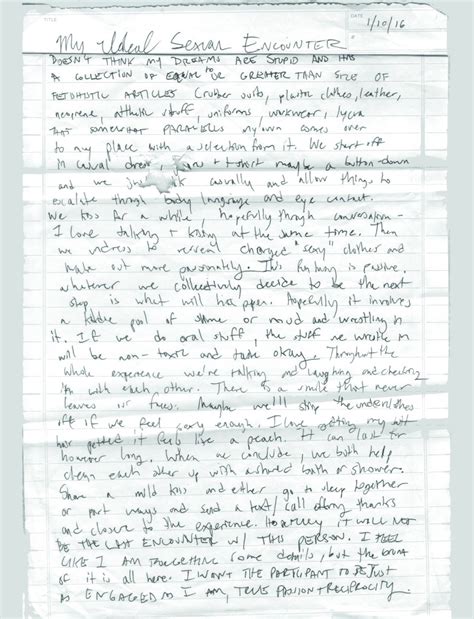 TITLE
DATE
1/10/16
My Ideal Sexual Encounter
DOESN'T THINK MY DREAMS ARE STUPID AND HAS
A COLLECTION OF EQUAL TO OR GREATER THAN SIZE OF
FETISHISTIC ARTICLES (rubber, plastic clothes, leather,
neoprene, athletic stuff, uniforms, workwear, lycra
that somewhat parallels my own comes over
to my place with a selection from it. We start off
in casual dress, t-shirt maybe a button-down
and we casually and allow things to
escalate through body language and eye contact.
We kiss for a while, hopefully through conversation -
I love talking + kissing at the same time. Then
we undress to reveal charged "sexy" clothes and
make out more passionately. This is positive,
whatever we collectively decide to be the next
step is what will happen. Hopefully it involves
a kiddie pool of slime or mud and wrestling in
it. If we do oral stuff, the stuff we wrestle in
will be non-toxic and taste okay. Throughout the
whole experience we're talking and laughing and checking
in with each other. There is a smile that never
leaves our faces. Maybe we'll strip the underclothes
off if we feel sexy enough. I love getting my butt
hair petted it feels like a peach. It can last for
however long. When we conclude, we both help
clean each other up with a shared bath or shower.
Share a mild kiss and either go to sleep together
or part ways and send a text/call along thanks
and closure to the experience. Hopefully it WILL NOT
BE THE LAST ENCOUNTER W/ THIS PERSON. I FEEL
LIKE I AM FORGETTING some details, but the
of it is all here. I WANT THE PARTICIPANT TO BE JUST
AS ENGAGED AS I AM, TRUE PASSION + RECIPROCITY.